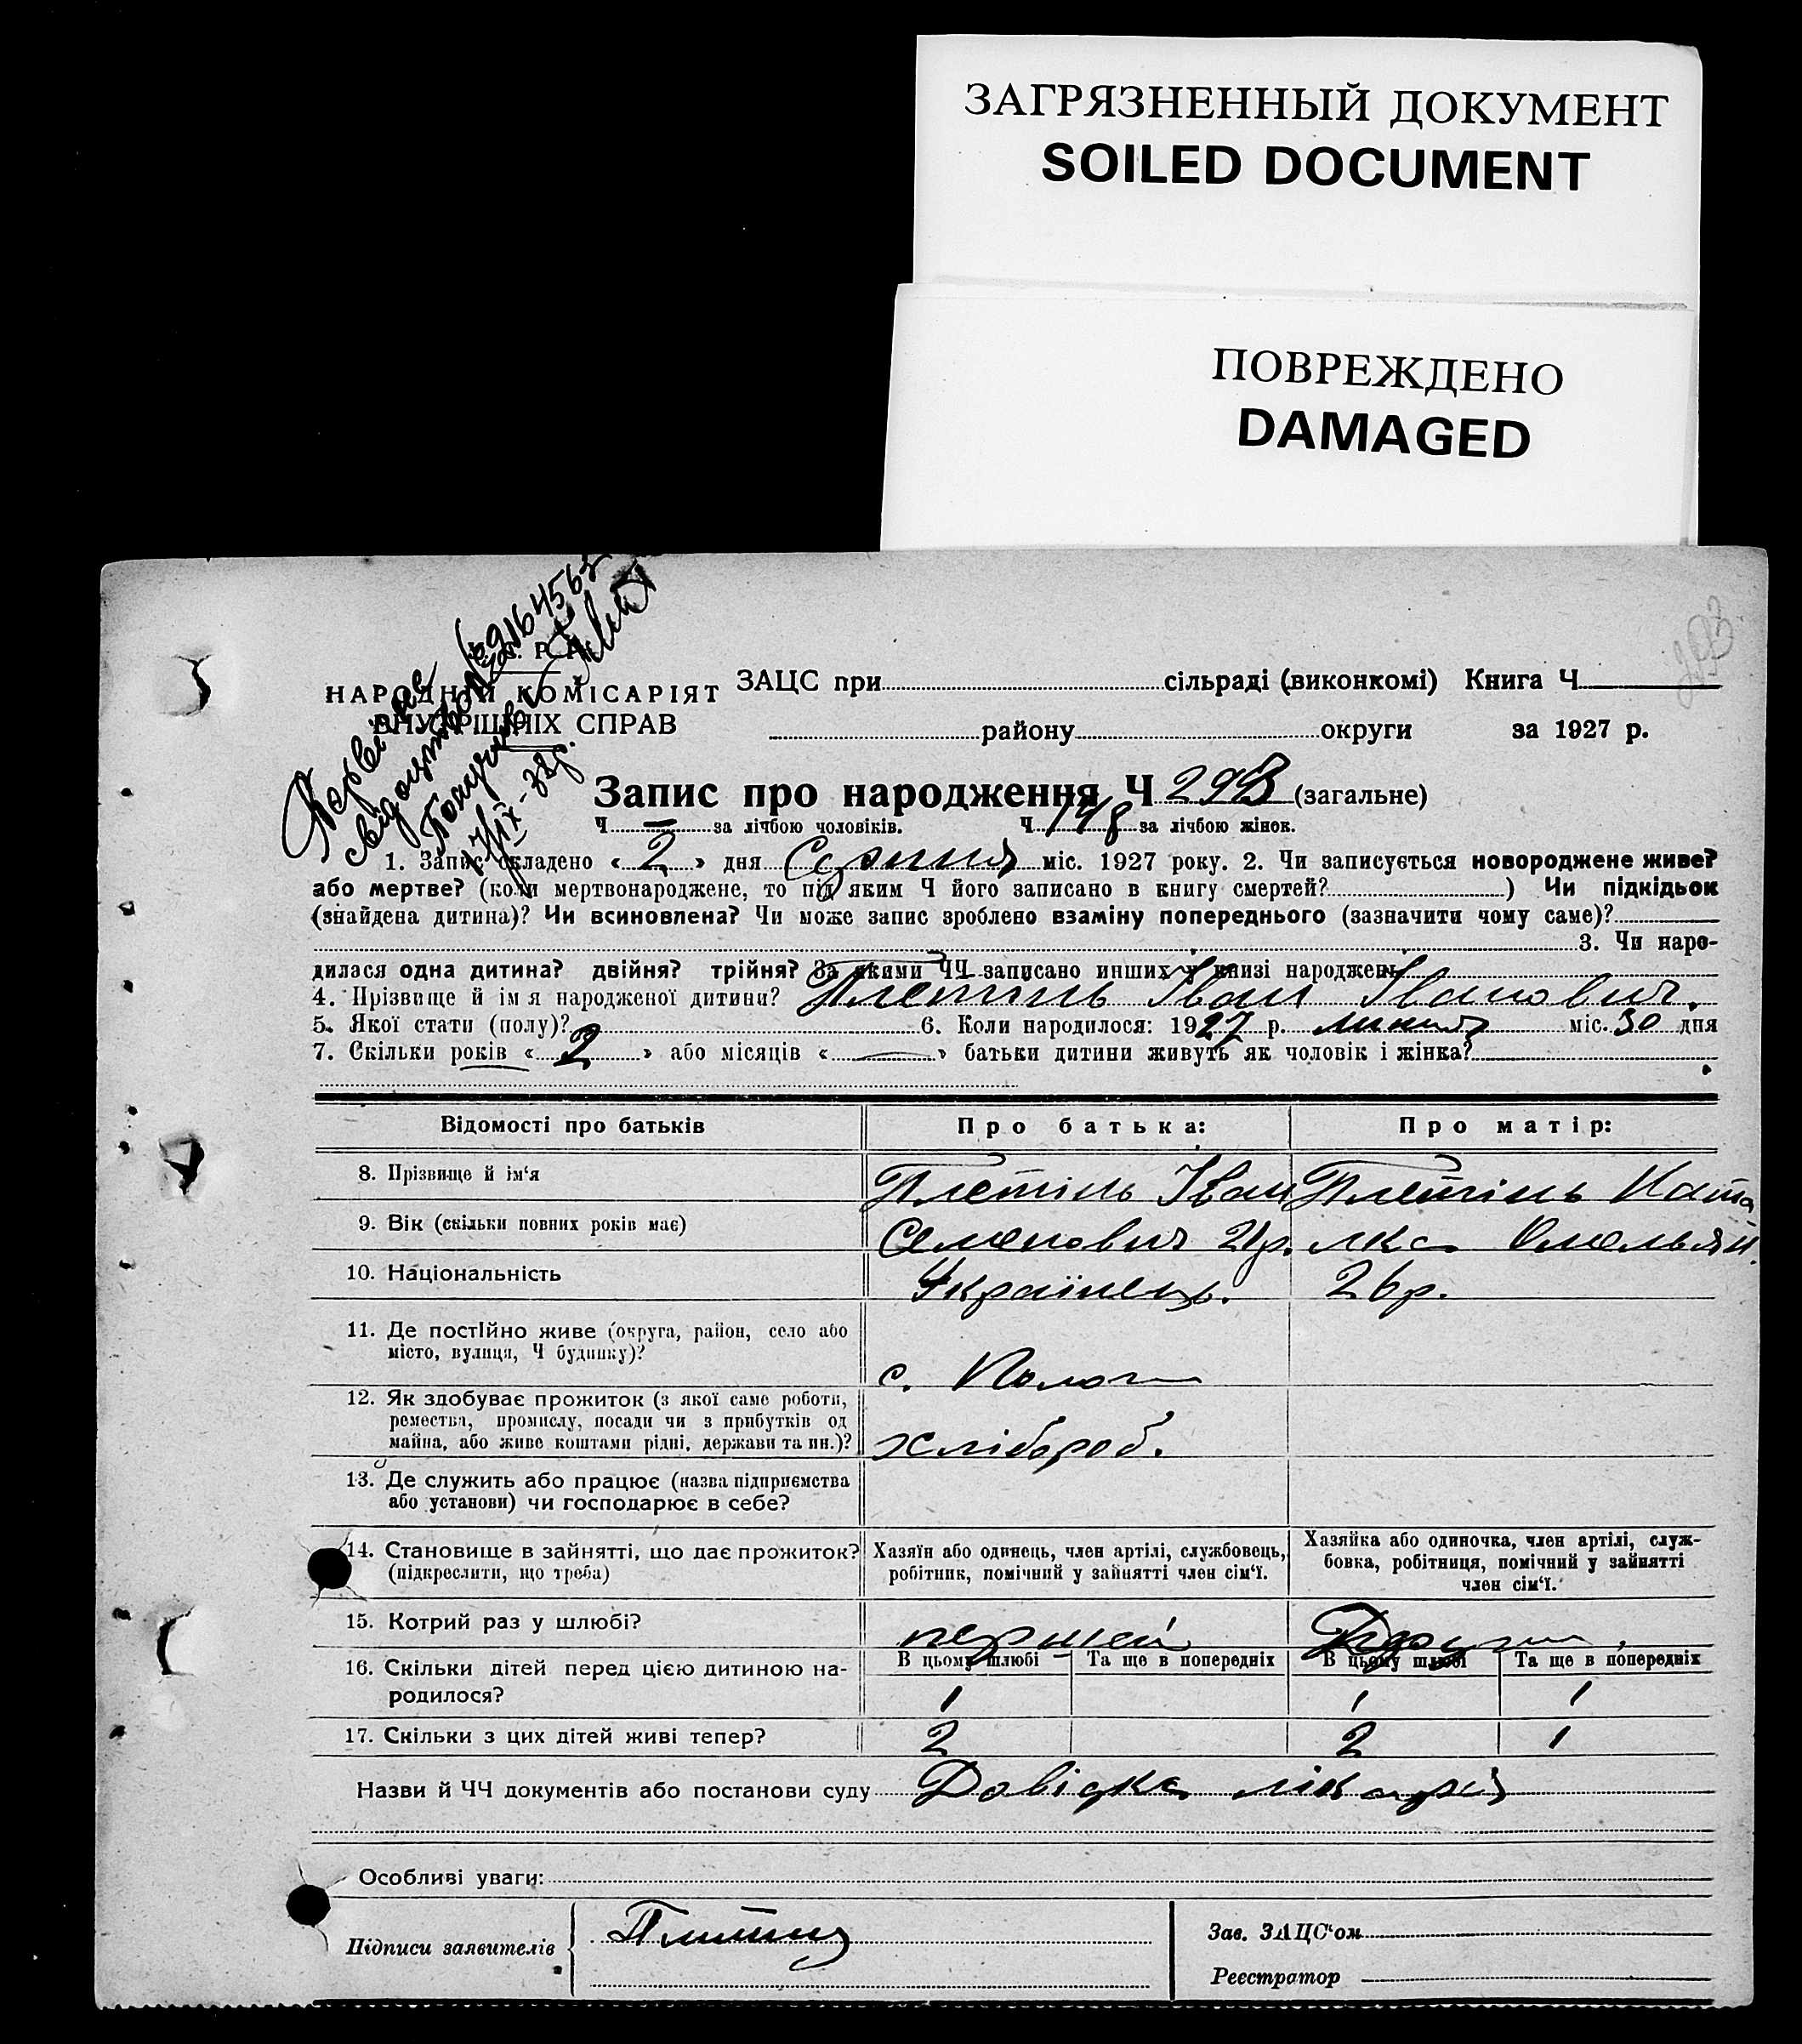 ЗАГРЯЗНЕННЫЙ ДОКУМЕНТ
SOILED DOCUMENT
ПОВРЕЖДЕНО
DAMAGED
НАРОДНІЙ КОМІСАРІЯТ
ВНУТРІШНІХ СПРАВ
ЗАЦС при сільраді (виконкомі) Книга Ч
району округи за 1927 р.
Запис про народження Ч 293 (загальне)
Ч — за лічбою чоловіків. Ч 148 за лічбою жінок.
1. Запис складено « 2 » дня Серпня міс. 1927 року. 2. Чи записується новороджене живе?
або мертве? (коли мертвонароджене, то під яким Ч його записано в книгу смертей? ) Чи підкідьок
(знайдена дитина)? Чи всиновлена? Чи може запис зроблено взаміну попереднього (зазначити чому саме)?
3. Чи наро-
дилася одна дитина? двійня? трійня? За якими ЧЧ записано инших у книзі народжень
4. Прізвище й ім я народженої дитини? Плетінь Іван Іванович.
5. Якої стати (полу)? 6. Коли народилося: 1927 р. липня міс. 30 дня
7. Скільки років « 2 » або місяців « — » батьки дитини живуть як чоловік і жінка?
Відомості про батьків Про батька: Про матір:
8. Прізвище й ім‘я Плетінь Іван Плетінь
9. Вік (скільки повних років має) Семенович 21р. Омельян.
10. Національність Українець. 26р.
11. Де постійно живе (округа, район, село або
місто, вулиця, Ч будинку)? с. Полог
12. Як здобуває прожиток (з якої саме роботи,
ремества, промислу, посади чи з прибутків од
майна, або живе коштами рідні, держави та ин.)? хлібороб.
13. Де служить або працює (назва підприємства
або установи) чи господарює в себе?
14. Становище в зайнятті, що дає прожиток?
(підкреслити, що треба)
Хазяїн або одинець, член артілі, службовець,
робітник, помічний у зайнятті член сім‘ї.
Хазяйка або одиночка, член артілі, служ-
бовка, робітниця, помічний у зайнятті
член сім‘ї.
15. Котрий раз у шлюбі? першей
16. Скільки дітей перед цією дитиною на-
родилося?
В цьому шлюбі Та ще в попередніх В цьому шлюбі Та ще в попередніх
1 1 1
17. Скільки з цих дітей живі тепер? 2 2 1
Назви й ЧЧ документів або постанови суду Довідка лікаря
Особливі уваги:
Підписи заявителів
Зав. ЗАЦС‘ом
Реєстратор